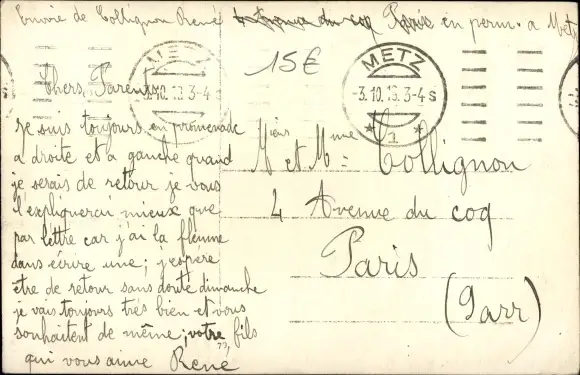 Envoie de Collignon René 4 Avenue du coq Paris en perm. a Metz
15€
METZ
3.10.13. 3-4
METZ
-3.10.13. 3-4 s
* 1 *
Chers Parents
je suis toujours en promenade
a droite et a gauche quand
je serais de retour je vous
l'expliquerai mieux que
par lettre car j'ai la flemme
dans écrire une; j'espère
être de retour sans doute dimanche
je vais toujours très bien et vous
souhaitent de même; votre fils
qui vous aime René
Mieurs et Mme Collignon
4 Avenue du coq
Paris
(9arr)